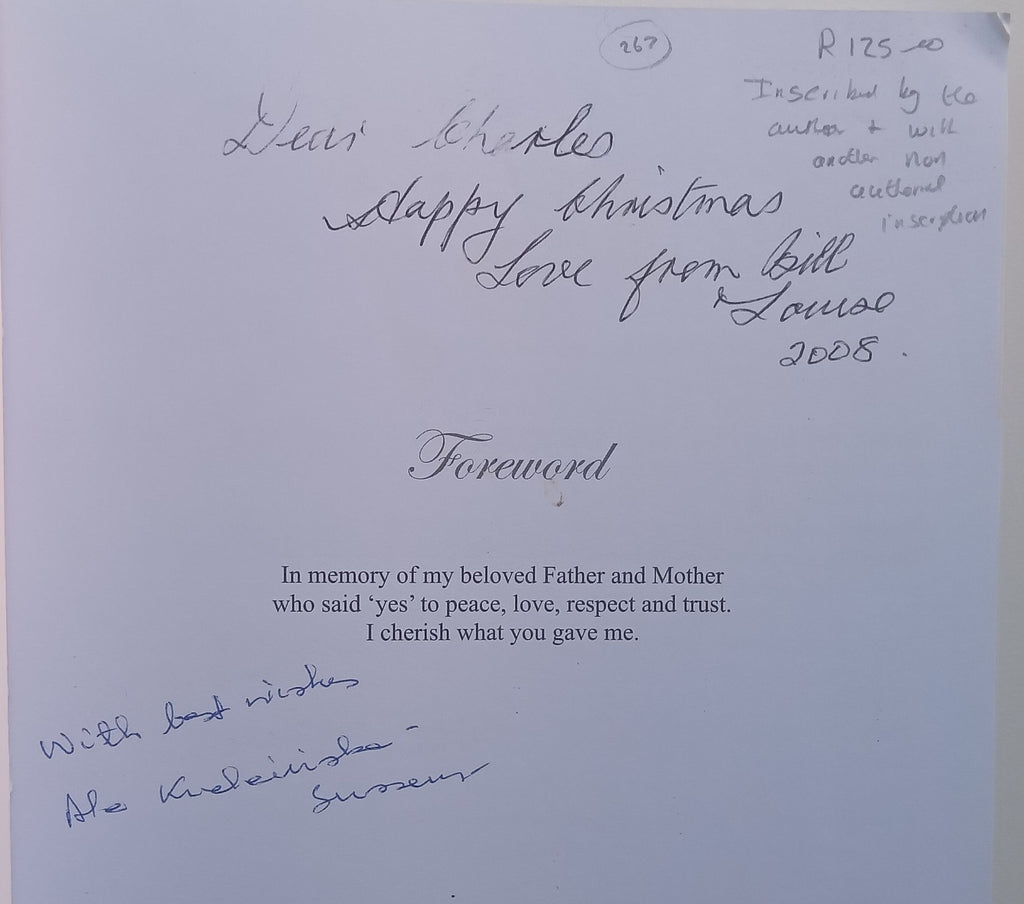 267
R 125-00
Inscribed by the
author + with
another non
authorial
inscription
Dear Charles
Happy Christmas
Love from Bill
& Louise
2008.
Foreword
In memory of my beloved Father and Mother
who said ‘yes’ to peace, love, respect and trust.
I cherish what you gave me.
With best wishes
Ala